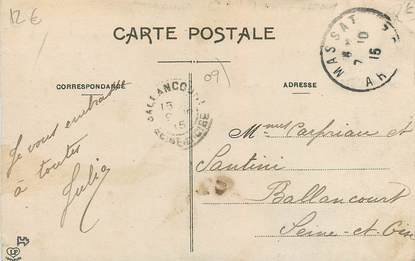 12 €
CARTE POSTALE
MASSAT
7-10
15
09
CORRESPONDANCE
ADRESSE
BALLANCOURT
15
SEINE-ET-OISE
Je vous embrasse
à toutes
Julia
Mmes Carprian et
Santini
Ballancourt
Seine-et-Oise